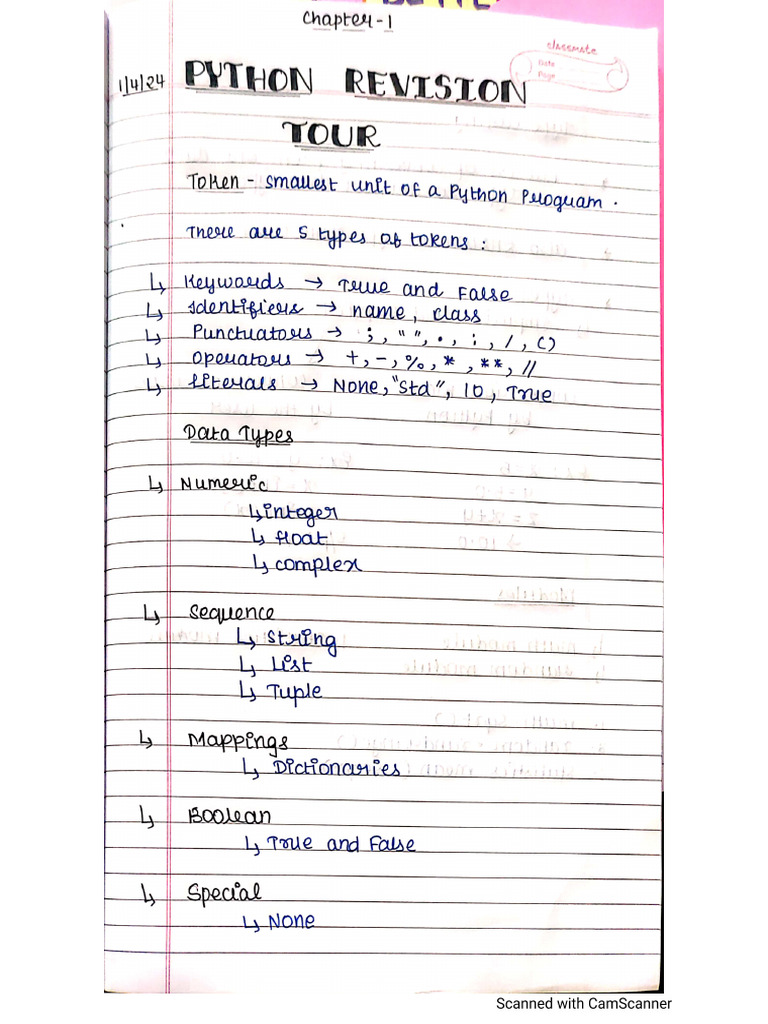 Chapter-1
classmate
Date
Page
1/4/24
PYTHON REVISION
TOUR
Token - Smallest unit of a Python Program.
There are 5 types of tokens :
↳ Keywords → True and False
↳ Identifiers → name, class
↳ Punctuators → ;, " ", ., :, /, ()
↳ Operators → +, -, %, *, **, //
↳ literals → None, "Std", 10, True
Data Types
↳ Numeric
↳ integer
↳ float
↳ complex
↳ Sequence
↳ String
↳ List
↳ Tuple
↳ Mappings
↳ Dictionaries
↳ Boolean
↳ True and False
↳ Special
↳ None
Scanned with CamScanner